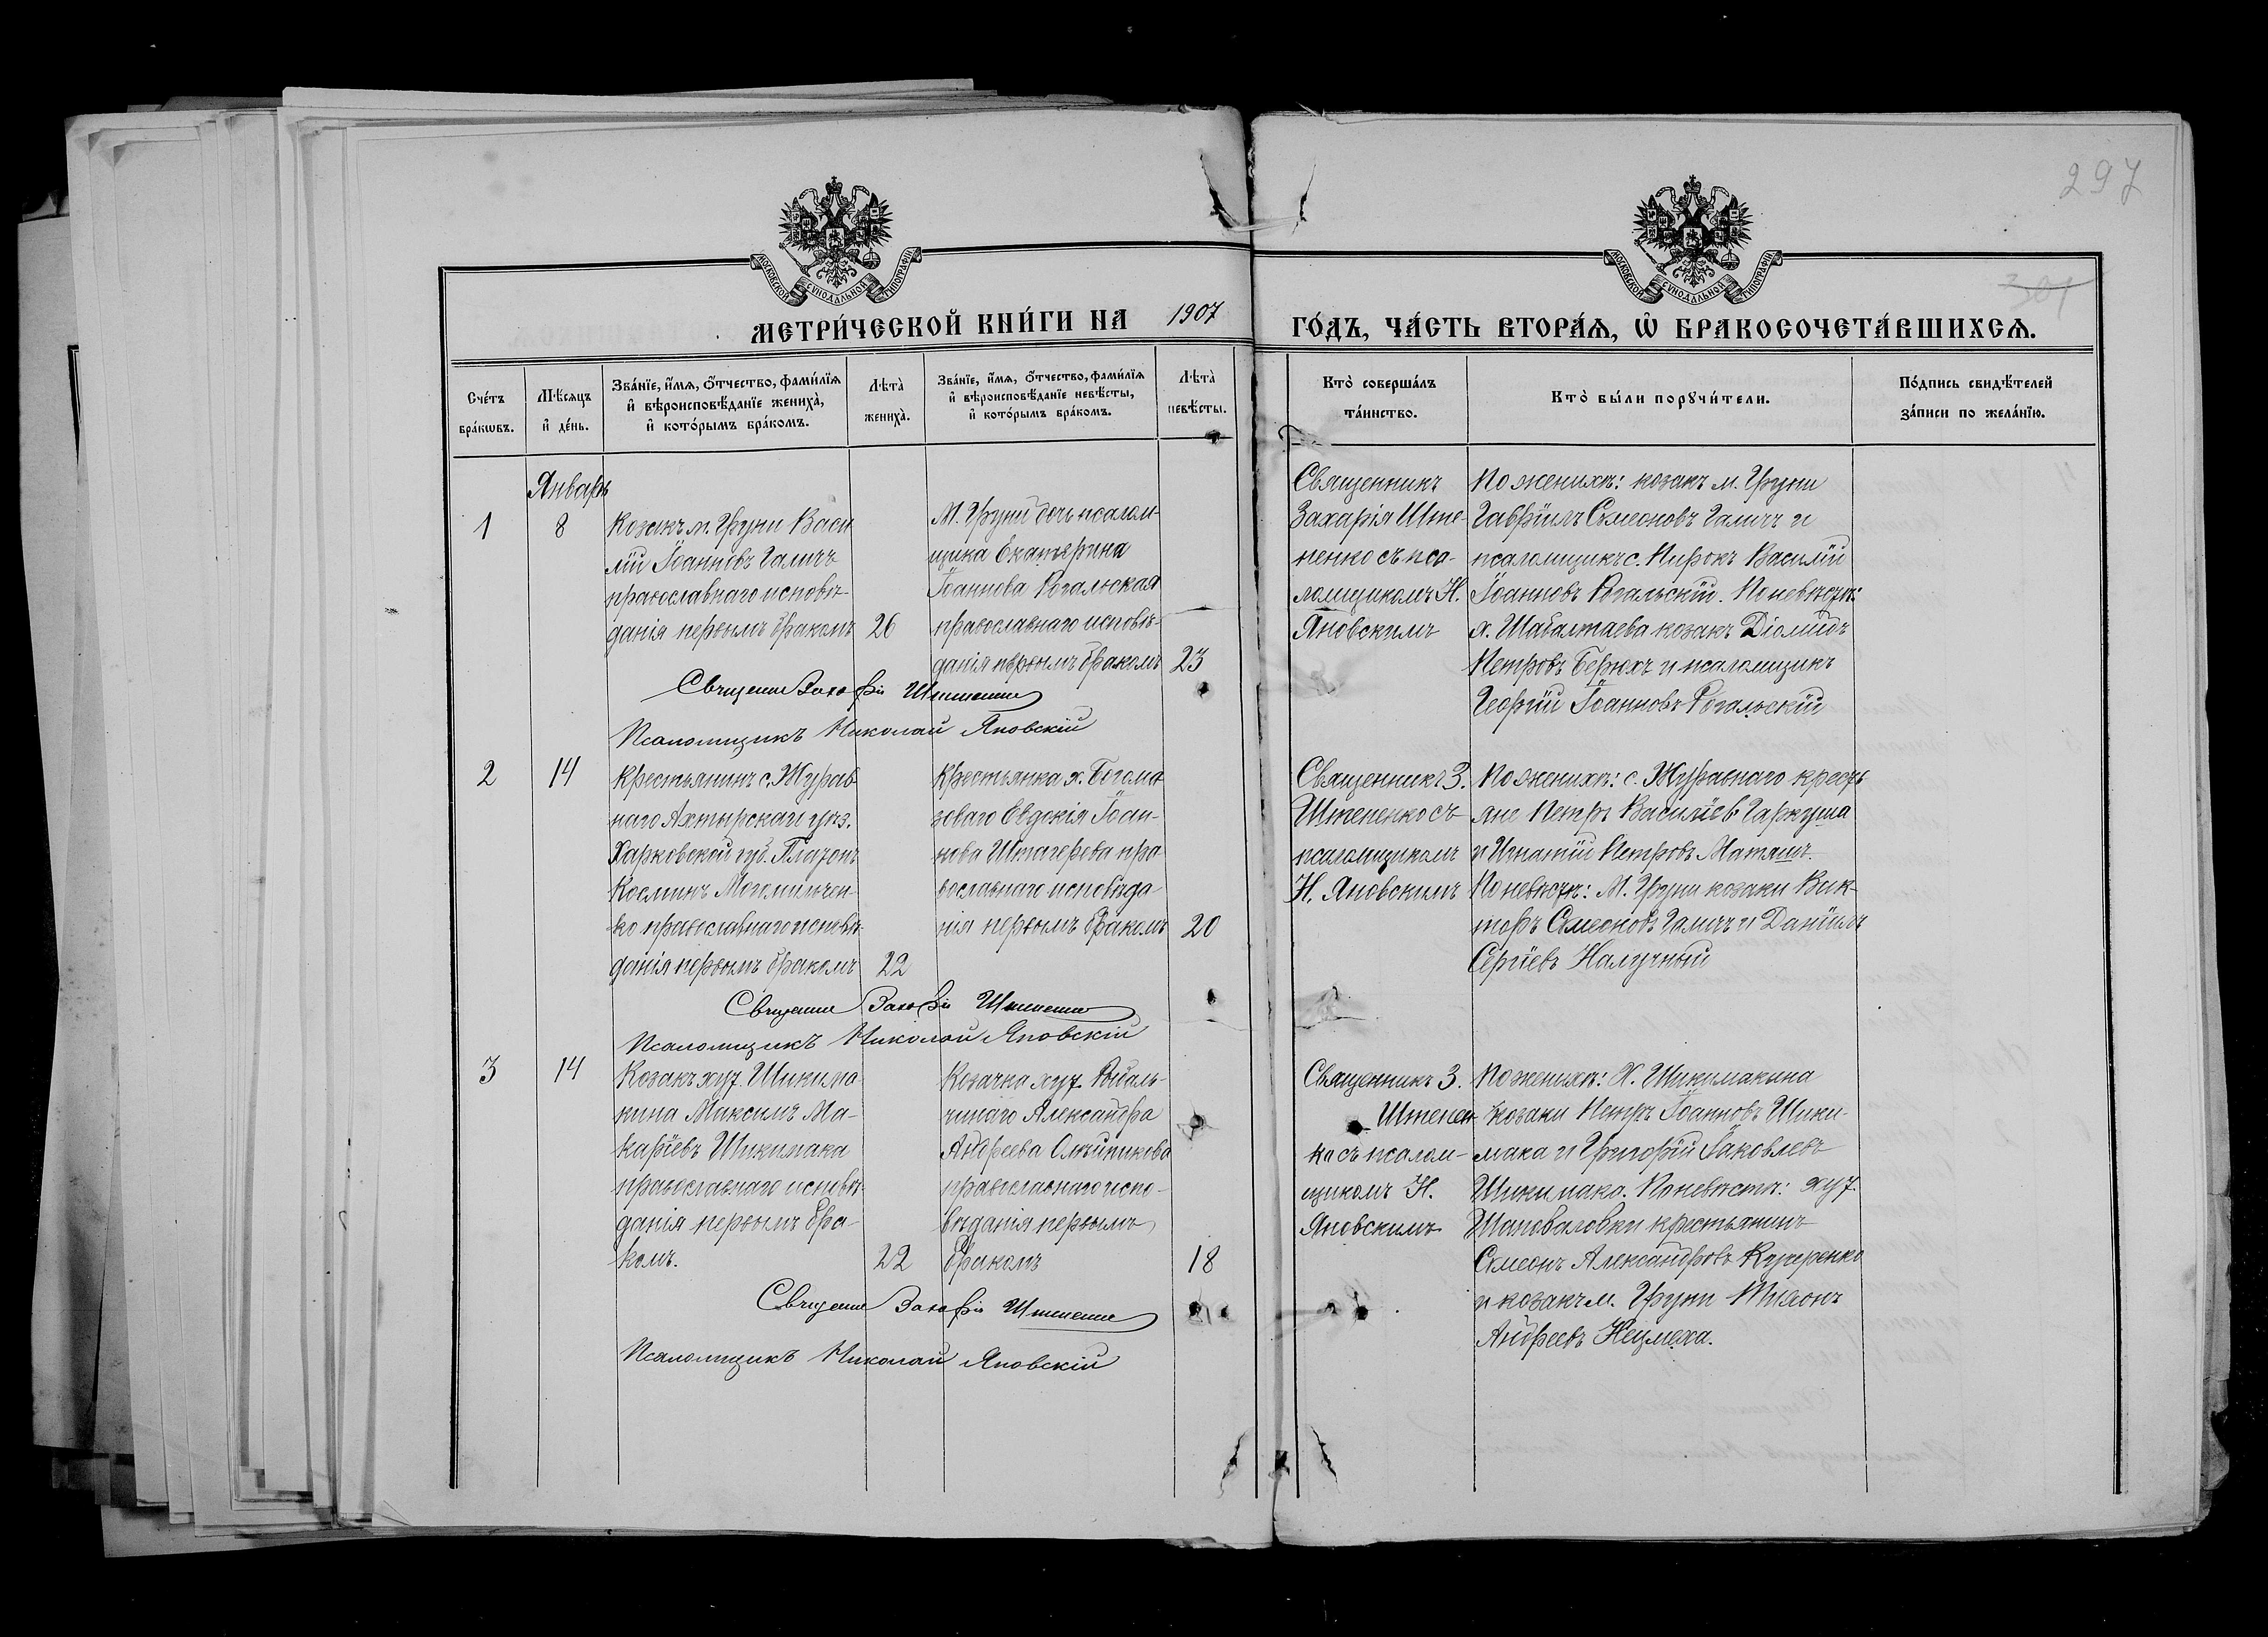 297
301
МОСКОВСКОЙ СѴНОДАЛЬНОЙ ТИПОГРАФІИ
МОСКОВСКОЙ СѴНОДАЛЬНОЙ ТИПОГРАФІИ
МЕТРИ́ЧЕСКОЙ КНИ́ГИ НА 1907 ГО́ДЪ, ЧА́СТЬ ВТОРА́Ѧ, Ѡ БРАКОСОЧЕТА́ВШИХСѦ.
Сче́тъ
бра́кѡвъ.
Мѣ́сѧцъ
и҆ де́нь.
Зва́нїе, и҆́мѧ, ѻ҆́тчество, фами́лїѧ
и҆ вѣроисповѣ́данїе жениха̀,
и҆ кото́рымъ бра́комъ.
Лѣта̀
жениха̀.
Зва́нїе, и҆́мѧ, ѻ҆́тчество, фами́лїѧ
и҆ вѣроисповѣ́данїе невѣ́сты,
и҆ кото́рымъ бра́комъ.
Лѣта̀
невѣ́сты.
Кто̀ соверша́лъ
та́инство.
Кто̀ бы́ли порꙋчи́тели.
По́дпись свидѣ́телей
за́писи по жела́нїю.
Январь
1
8
Козакъ м. Груни Васи
лій Іоанновъ Галичъ
православнаго исповѣ-
данія первымъ бракомъ
26
М. Груни дочь псалом-
щика Екатерина
Іоаннова Рогальская
православнаго исповѣ-
данія первымъ бракомъ
23
Священникъ
ЗахаріяШте-
пенко съ пса-
ломщикомъ Н.
Яновскимъ
По женихѣ: козакъ м. Груни
Гавріилъ Симеоновъ Галичъ и
псаломщикъ с. Пирокъ Василій
Іоанновъ Рогальскій. По невѣстѣ:
х. Шабалтаева козакъ Діомидъ
Петровъ Берюхъ и псаломщикъ
Георгій Іоанновъ Рогальскій
Священ Захарія Штепенко
Псаломщикъ Николай Яновскій
2
14
Крестьянинъ с. Журав
наго Ахтырскаго уѣз.
Харковской губ. Платонъ
Косминъ Могомильчен-
ко православнаго исповѣ-
данія первымъ бракомъ
22
Крестьянка х. Богома
зоваго Евдокія Іоан-
нова Штагерева пра
вославнаго исповѣда-
нія первымъ бракомъ
20
Священникъ З.
Штепенко съ
псаломщикомъ
Н. Яновскимъ
По женихѣ: с. Журавнаго кресть
яне Петръ Василіев Гаркуша
и Игнатій Петровъ Матяшъ.
По невѣстѣ: М. Груни козаки Вик-
торъ Симеоновъ Галичъ и Даніилъ
Сергіевъ Налучный
Священ Захарія Штепенко
Псаломщикъ Николай Яновскій
3
14
Козакъ хут. Шикима
кина Максимъ Ма-
каріевъ Шикимака
православнаго исповѣ-
данія первымъ бра-
комъ.
22
Козачка хут. Рыбаль-
чинаго Александра
Андреева Олѣйникова
православнаго испо-
вѣданія первымъ
бракомъ
18
Священникъ З.
Штепен
ко съ псалом-
щикомъ Н.
Яновскимъ
По женихѣ: Х. Шикимакина
козаки Петръ Іоанновъ Шики-
мака и Григорій Іаковлевъ
Шикимака. По невѣстѣ: хут.
Шаповаловки крестьянинъ
Симеонъ Александровъ Кучеренко
и козакъ м. Груни Тихонъ
Андреевъ Неумеха.
Священ Захарія Штепенко
Псаломщикъ Николай Яновскій